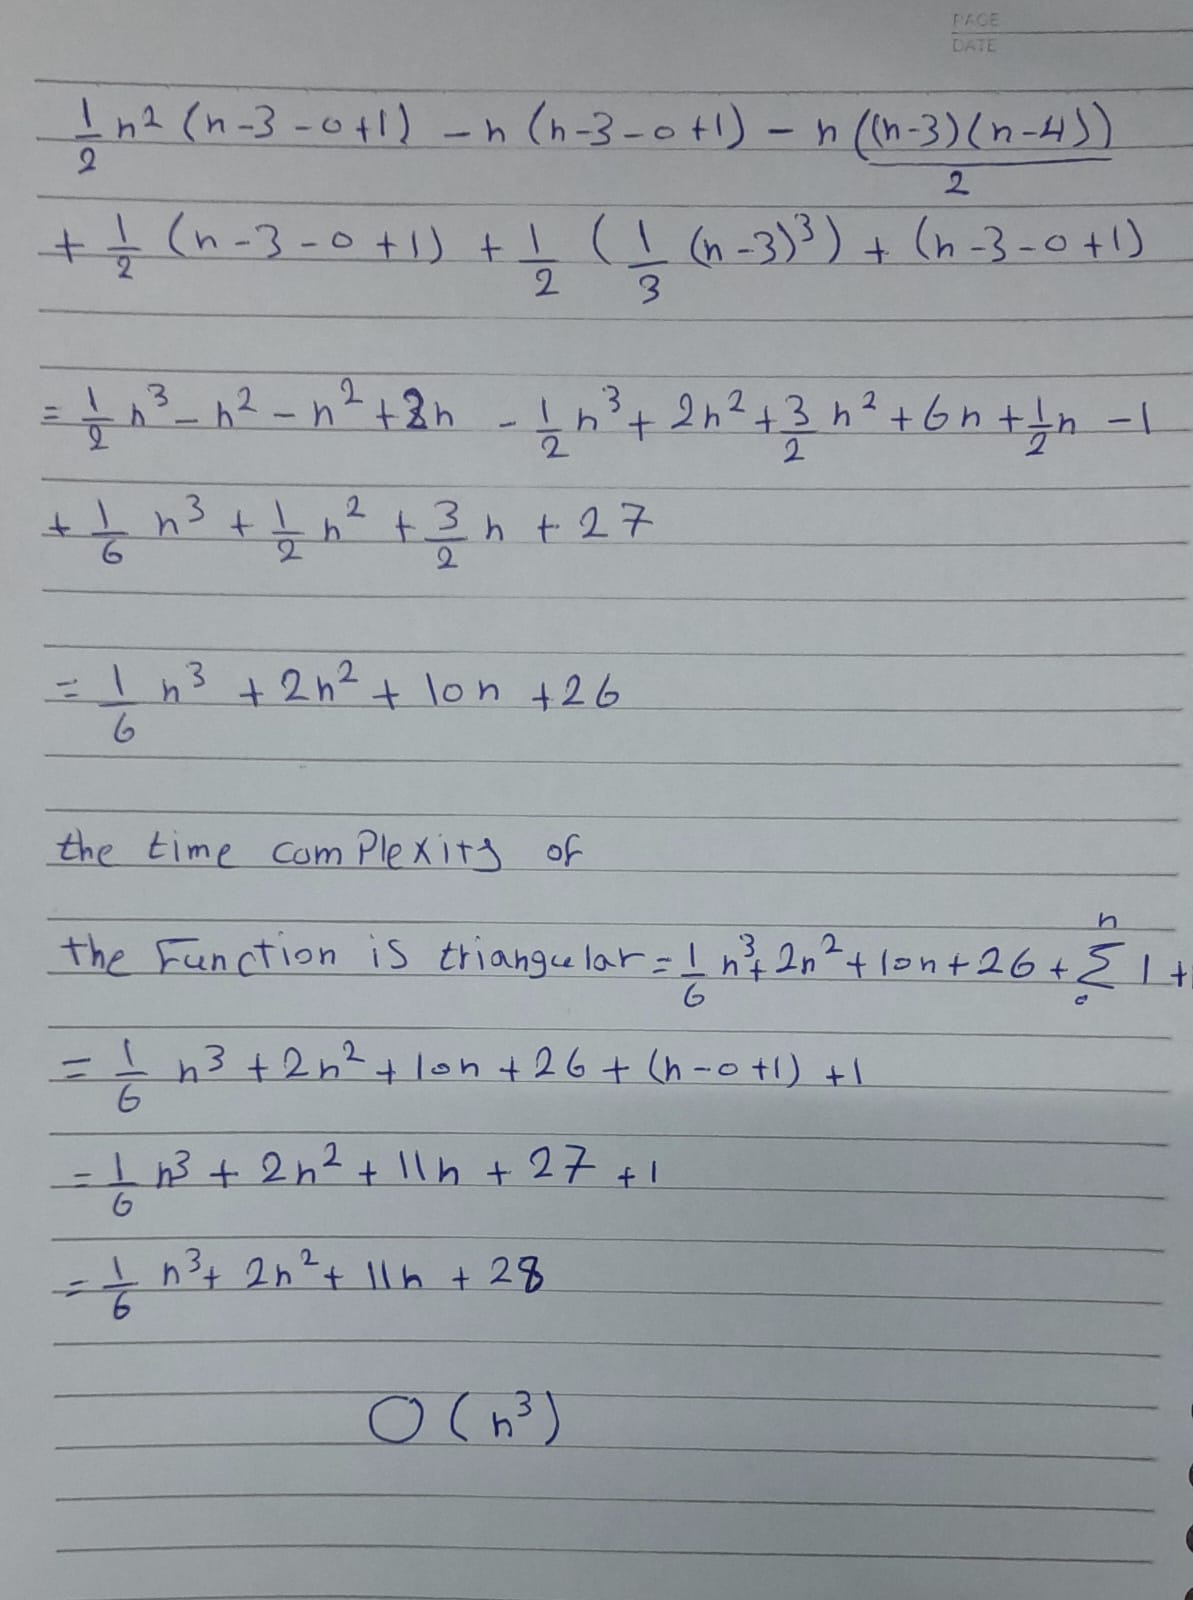 PAGE
DATE
1/2 n² (n-3-0+1) - n (n-3-0+1) - n ((n-3)(n-4))/2
+ 1/2 (n-3-0+1) + 1/2 (1/3 (n-3)³) + (n-3-0+1)
= 1/2 n³ - n² - n² + 2n - 1/2 n³ + 2n² + 3/2 n² + 6n + 1/2 n - 1
+ 1/6 n³ + 1/2 n² + 3/2 n + 27
= 1/6 n³ + 2n² + 10n + 26
the time complexity of
the Function is triangular = 1/6 n³ + 2n² + 10n + 26 + Σ₀ⁿ 1 +
= 1/6 n³ + 2n² + 10n + 26 + (n-0+1) + 1
= 1/6 n³ + 2n² + 11n + 27 + 1
= 1/6 n³ + 2n² + 11n + 28
O(n³)